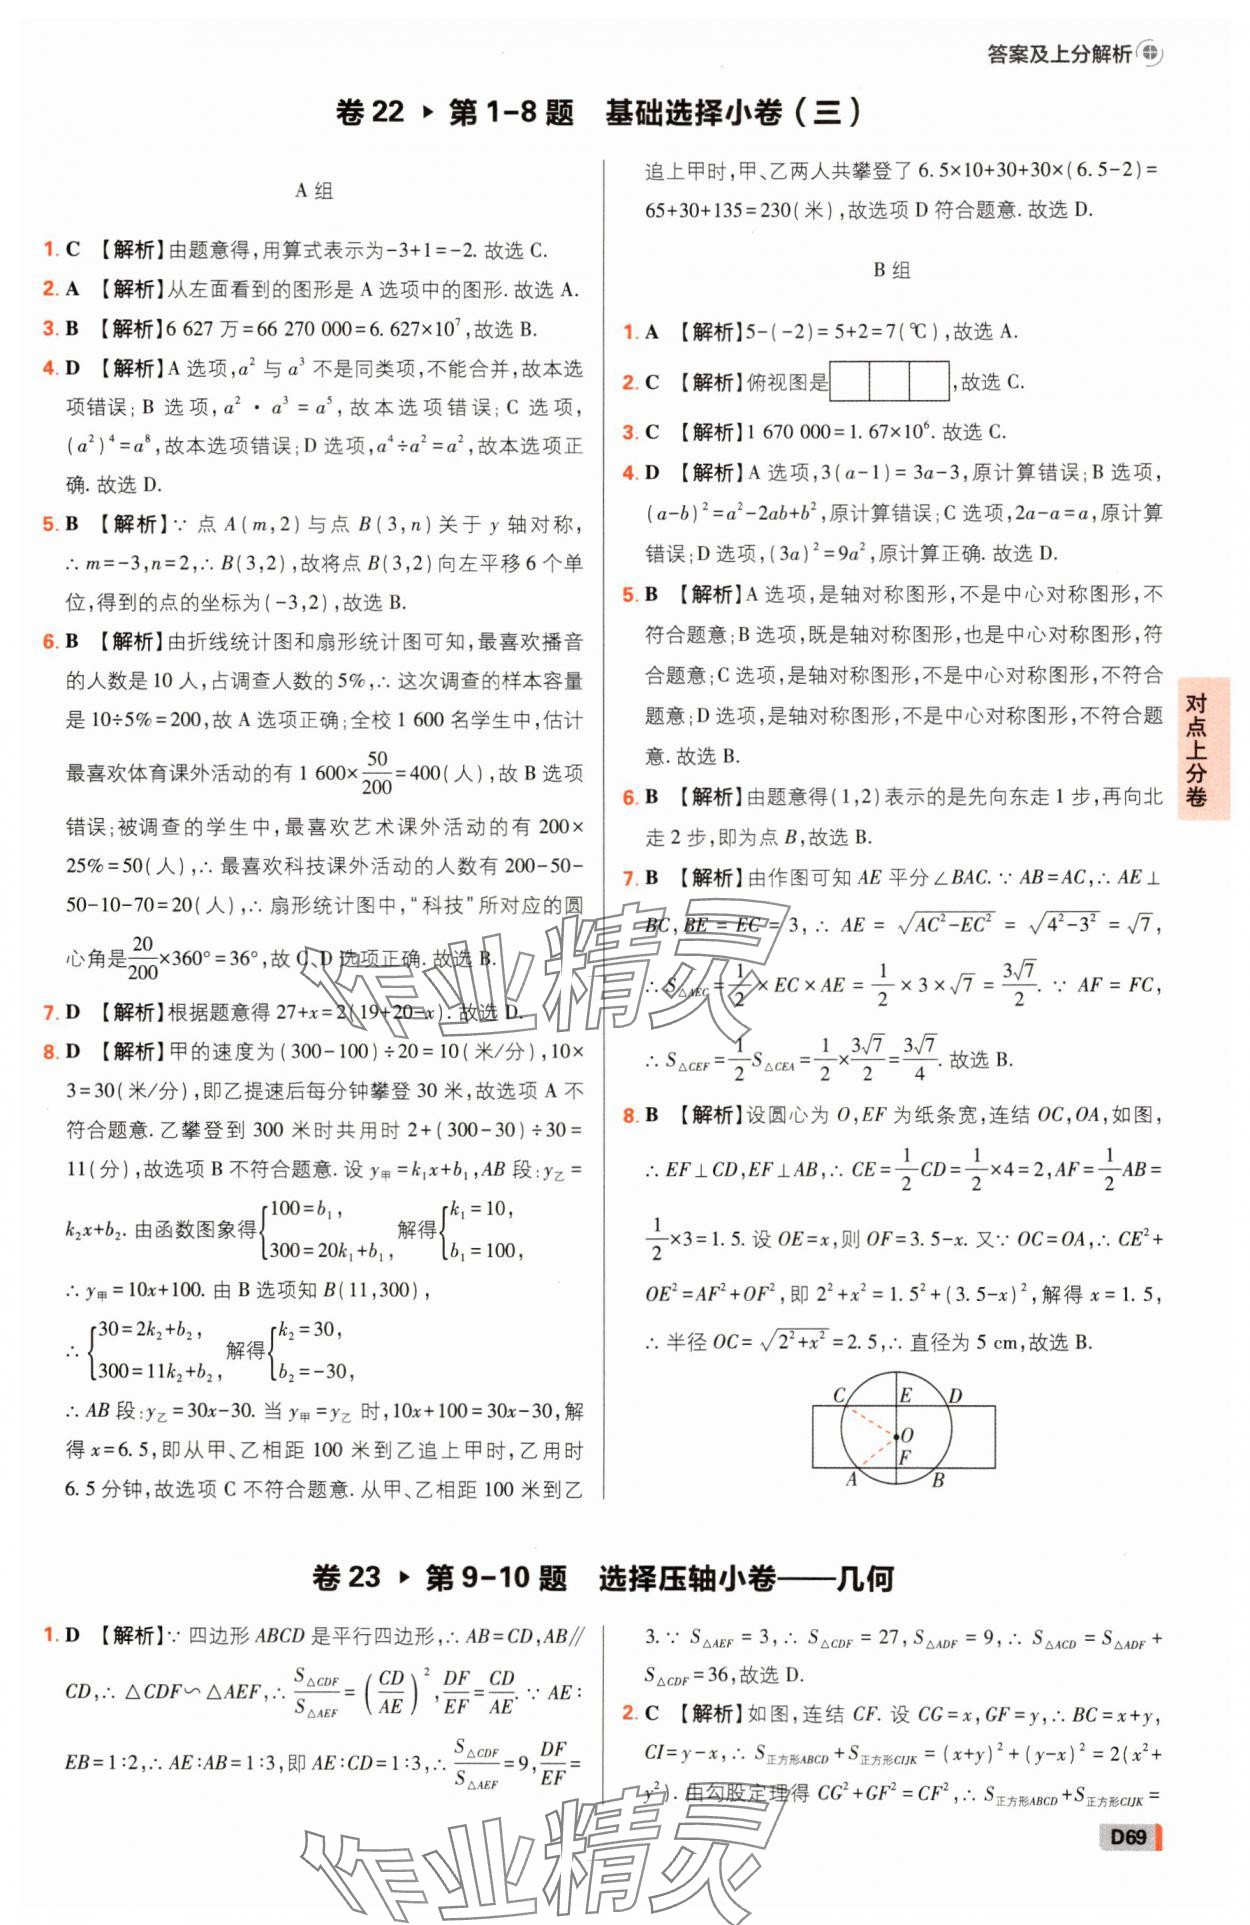 答案及上分解析
卷 22 ▶ 第 1-8 题 基础选择小卷(三)
A 组
1. C 【解析】由题意得,用算式表示为-3+1=-2. 故选 C.
2. A 【解析】从左面看到的图形是 A 选项中的图形. 故选 A.
3. B 【解析】6 627 万=66 270 000=6. 627×10⁷,故选 B.
4. D 【解析】A 选项,a² 与 a³ 不是同类项,不能合并,故本选
项错误;B 选项,a²·a³=a⁵,故本选项错误;C 选项,
(a²)⁴=a⁸,故本选项错误;D 选项,a⁴÷a²=a²,故本选项正
确. 故选 D.
5. B 【解析】∵ 点 A(m,2)与点 B(3,n)关于 y 轴对称,
∴ m=-3,n=2,∴ B(3,2),故将点 B(3,2)向左平移 6 个单
位,得到的点的坐标为(-3,2),故选 B.
6. B 【解析】由折线统计图和扇形统计图可知,最喜欢播音
的人数是 10 人,占调查人数的 5%,∴ 这次调查的样本容量
是 10÷5%=200,故 A 选项正确;全校 1 600 名学生中,估计
最喜欢体育课外活动的有 1 600×50/200=400(人),故 B 选项
错误;被调查的学生中,最喜欢艺术课外活动的有 200×
25%=50(人),∴ 最喜欢科技课外活动的人数有 200-50-
50-10-70=20(人),∴ 扇形统计图中,“科技”所对应的圆
心角是20/200×360°=36°,故 C、D 选项正确. 故选 B.
7. D 【解析】根据题意得 27+x=2(19+20-x). 故选 D.
8. D 【解析】甲的速度为(300-100)÷20=10(米/分),10×
3=30(米/分),即乙提速后每分钟攀登 30 米,故选项 A 不
符合题意. 乙攀登到 300 米时共用时 2+(300-30)÷30=
11(分),故选项 B 不符合题意. 设 y甲=k₁x+b₁,AB 段:y乙=
k₂x+b₂. 由函数图象得{100=b₁, 300=20k₁+b₁, 解得{k₁=10, b₁=100,
∴ y甲=10x+100. 由 B 选项知 B(11,300),
∴ {30=2k₂+b₂, 300=11k₂+b₂, 解得{k₂=30, b₂=-30,
∴ AB 段:y乙=30x-30. 当 y甲=y乙 时,10x+100=30x-30,解
得 x=6. 5,即从甲、乙相距 100 米到乙追上甲时,乙用时
6. 5 分钟,故选项 C 不符合题意. 从甲、乙相距 100 米到乙
追上甲时,甲、乙两人共攀登了 6. 5×10+30+30×(6. 5-2)=
65+30+135=230(米),故选项 D 符合题意. 故选 D.
B 组
1. A 【解析】5-(-2)=5+2=7(℃),故选 A.
2. C 【解析】俯视图是 ,故选 C.
3. C 【解析】1 670 000=1. 67×10⁶. 故选 C.
4. D 【解析】A 选项,3(a-1)=3a-3,原计算错误;B 选项,
(a-b)²=a²-2ab+b²,原计算错误;C 选项,2a-a=a,原计算
错误;D 选项,(3a)²=9a²,原计算正确. 故选 D.
5. B 【解析】A 选项,是轴对称图形,不是中心对称图形,不
符合题意;B 选项,既是轴对称图形,也是中心对称图形,符
合题意;C 选项,是轴对称图形,不是中心对称图形,不符合
题意;D 选项,是轴对称图形,不是中心对称图形,不符合题
意. 故选 B.
6. B 【解析】由题意得(1,2)表示的是先向东走 1 步,再向北
走 2 步,即为点 B,故选 B.
7. B 【解析】由作图可知 AE 平分∠BAC. ∵ AB=AC,∴ AE⊥
BC,BE=EC=3,∴ AE=√(AC²-EC²)=√(4²-3²)=√7,
∴ S△AEC=1/2×EC×AE=1/2×3×√7=3√7/2. ∵ AF=FC,
∴ S△CEF=1/2S△CEA=1/2×3√7/2=3√7/4. 故选 B.
8. B 【解析】设圆心为 O,EF 为纸条宽,连结 OC,OA,如图,
∴ EF⊥CD,EF⊥AB,∴ CE=1/2CD=1/2×4=2,AF=1/2AB=
1/2×3=1. 5. 设 OE=x,则 OF=3. 5-x. 又∵ OC=OA,∴ CE²+
OE²=AF²+OF²,即 2²+x²=1. 5²+(3. 5-x)²,解得 x=1. 5,
∴ 半径 OC=√(2²+x²)=2. 5,∴ 直径为 5 cm,故选 B.
C E D
O
F
A B
对点上分卷
卷 23 ▶ 第 9-10 题 选择压轴小卷——几何
1. D 【解析】∵ 四边形 ABCD 是平行四边形,∴ AB=CD,AB∥
CD,∴ △CDF∽△AEF,∴ S△CDF/S△AEF=(CD/AE)²,DF/EF=CD/AE. ∵ AE:
EB=1:2,∴ AE:AB=1:3,即 AE:CD=1:3,∴ S△CDF/S△AEF=9,DF/EF=
3. ∵ S△AEF=3,∴ S△CDF=27,S△ADF=9,∴ S△ACD=S△ADF+
S△CDF=36,故选 D.
2. C 【解析】如图,连结 CF. 设 CG=x,GF=y,∴ BC=x+y,
CI=y-x,∴ S正方形ABCD+S正方形CIJK=(x+y)²+(y-x)²=2(x²+
y²). 由勾股定理得 CG²+GF²=CF²,∴ S正方形ABCD+S正方形CIJK=
D69
作业精灵
作业精灵